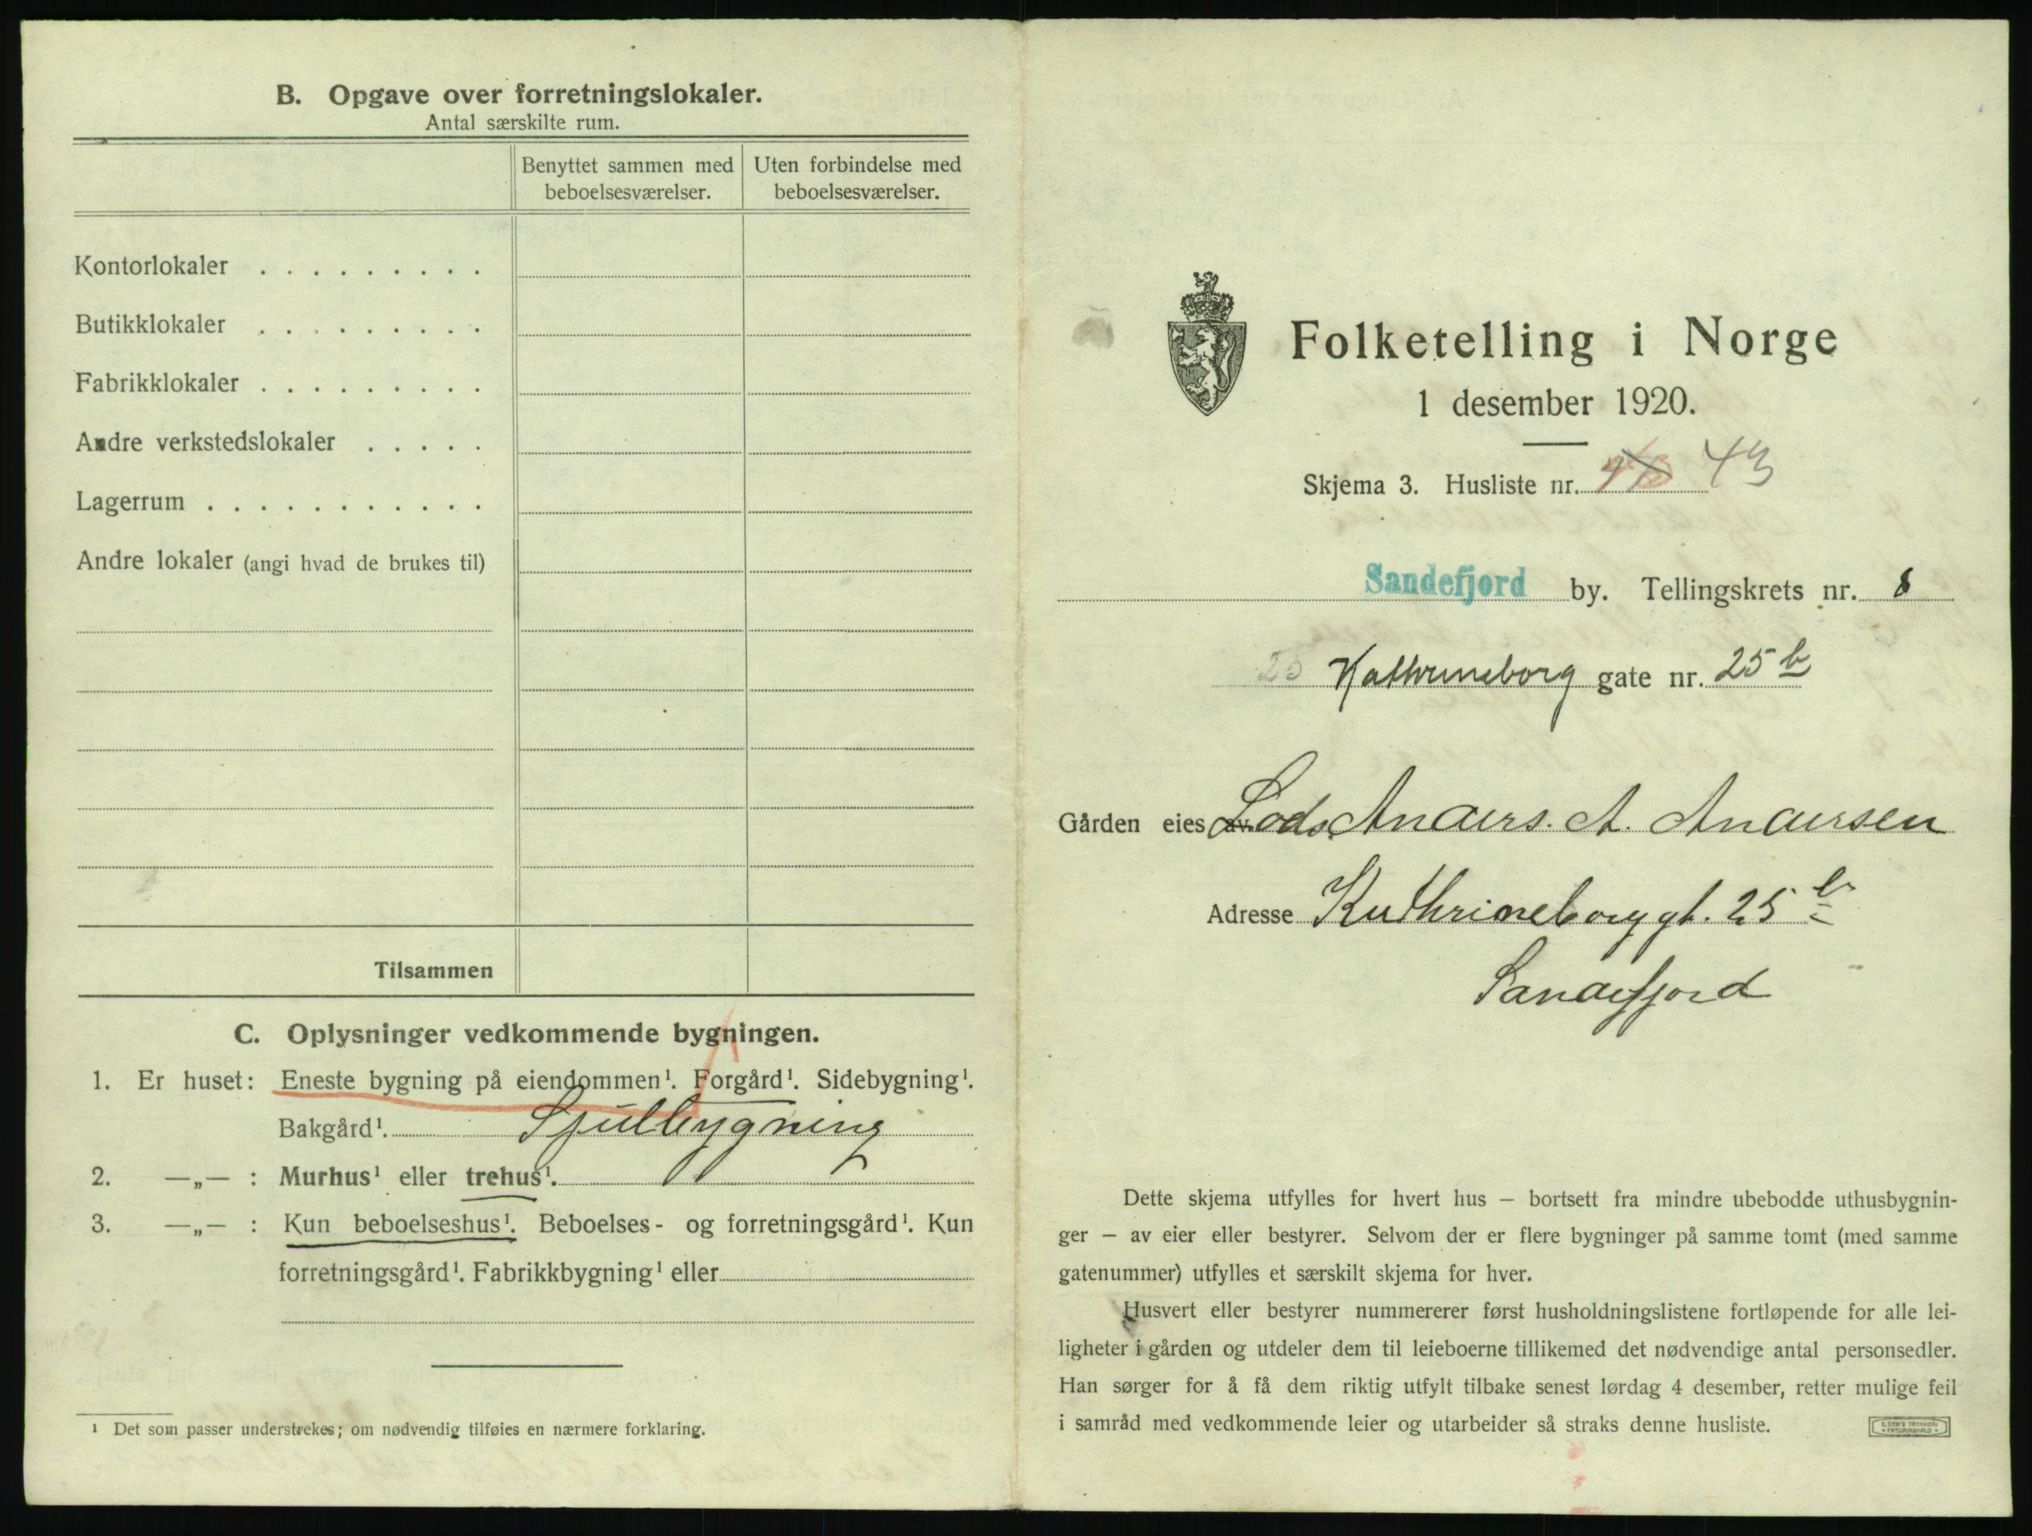 B. Opgave over forretningslokaler.
Antal særskilte rum.
Benyttet sammen med beboelsesværelser.
Uten forbindelse med beboelsesværelser.
Kontorlokaler . . . . . . . . .
Butikklokaler . . . . . . . . .
Fabrikklokaler . . . . . . . . .
Andre verkstedslokaler . . . . .
Lagerrum . . . . . . . . . . .
Andre lokaler (angi hvad de brukes til)
Tilsammen
C. Oplysninger vedkommende bygningen.
1. Er huset: Eneste bygning på eiendommen¹. Forgård¹. Sidebygning¹.
Bakgård¹. 
2. —„— : Murhus¹ eller trehus¹.
3. —„— : Kun beboelseshus¹. Beboelses- og forretningsgård¹. Kun
forretningsgård¹. Fabrikkbygning¹ eller
¹ Det som passer understrekes; om nødvendig tilføies en nærmere forklaring.
Folketelling i Norge
1 desember 1920.
Skjema 3. Husliste nr. 43
Sandefjord by. Tellingskrets nr. 8
25 Kathrineborg gate nr. 25 b
Gården eies av Lods Anders. A. Andersen
Adresse Kathrineborg gt. 25 b
Sandefjord
Dette skjema utfylles for hvert hus – bortsett fra mindre ubebodde uthusbygnin-
ger – av eier eller bestyrer. Selvom der er flere bygninger på samme tomt (med samme
gatenummer) utfylles et særskilt skjema for hver.
Husvert eller bestyrer nummererer først husholdningslistene fortløpende for alle lei-
ligheter i gården og utdeler dem til leieboerne tillikemed det nødvendige antal personsedler.
Han sørger for å få dem riktig utfylt tilbake senest lørdag 4 desember, retter mulige feil
i samråd med vedkommende leier og utarbeider så straks denne husliste.